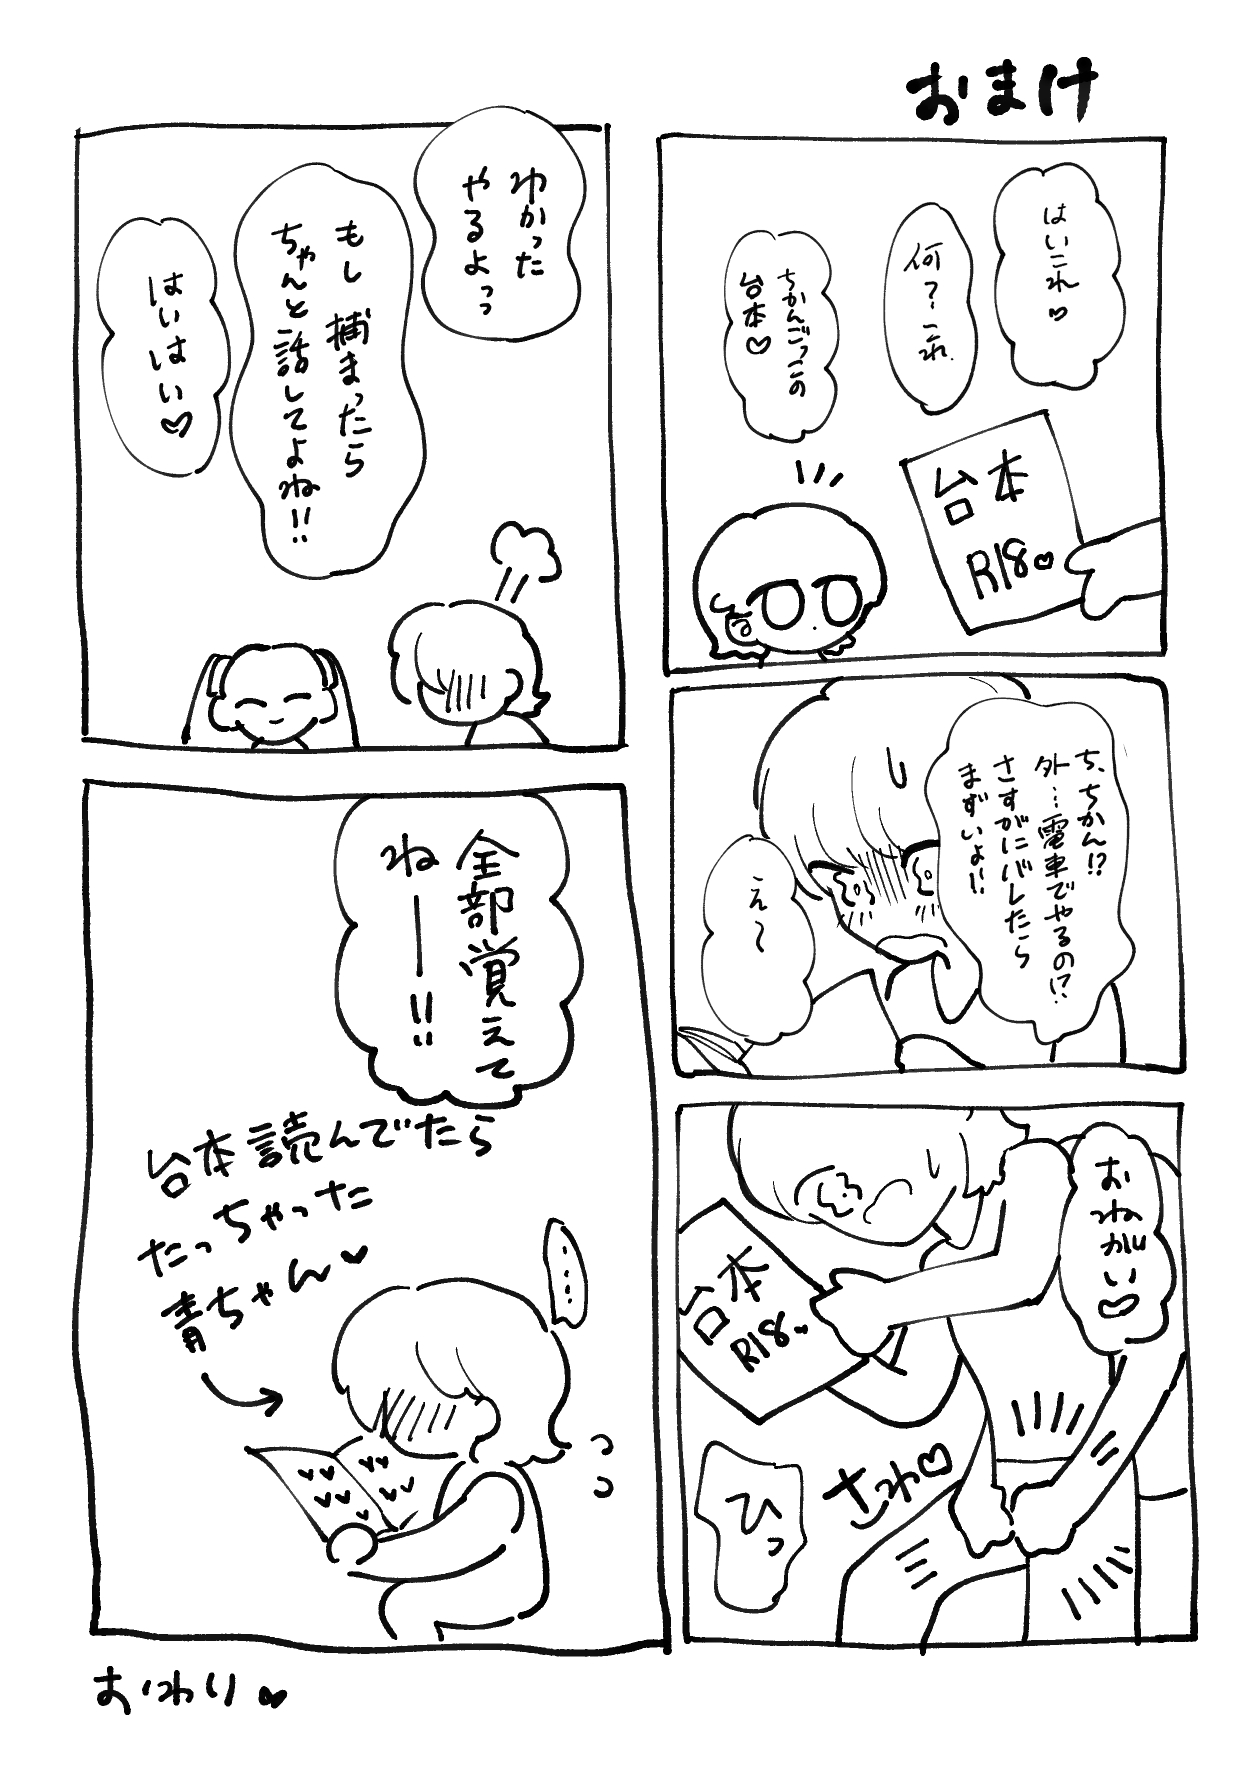 おまけ
はいこれ♡
何?これ
ちかんごっこの
台本♡
台本
R18♡
ち、ちかん!?
外…電車でやるの!?
さすがにバレたら
まずいよ!!
え〜
おねがい♡
台本
R18♡
さわ♡
ひっ
わかった
やるよっっ
もし捕まったら
ちゃんと話してよね!!
はいはい♡
全部覚えて
ねー!!
台本読んでたら
たっちゃった
青ちゃん♡
……
おわり♡